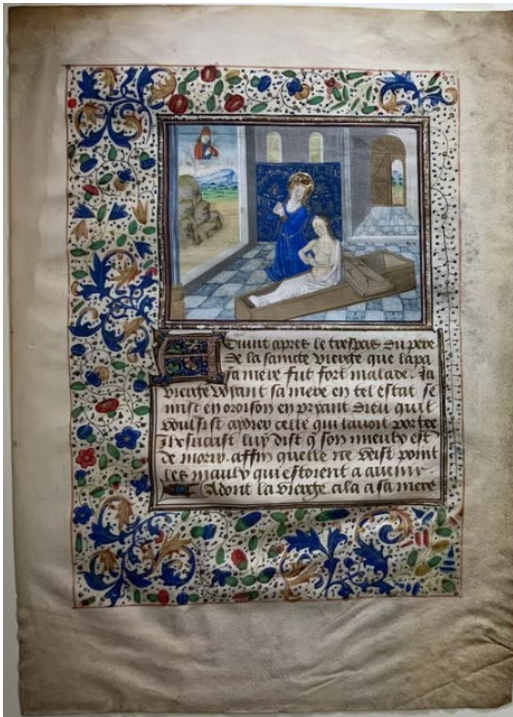 Avint apres le trespas du pere
de la saincte vierge que la pa
sa mere fut fort malade. La
vierge voyant sa mere en tel estat se
mist en oroison en pryant dieu quil
voulsist aydier celle qui lavoit portee
Jhesucrist luy dist q̄ son mieulx est
de morir. affin quelle ne veist point
les maulx qui estoient a advenir.
Adont la vierge ala a sa mere